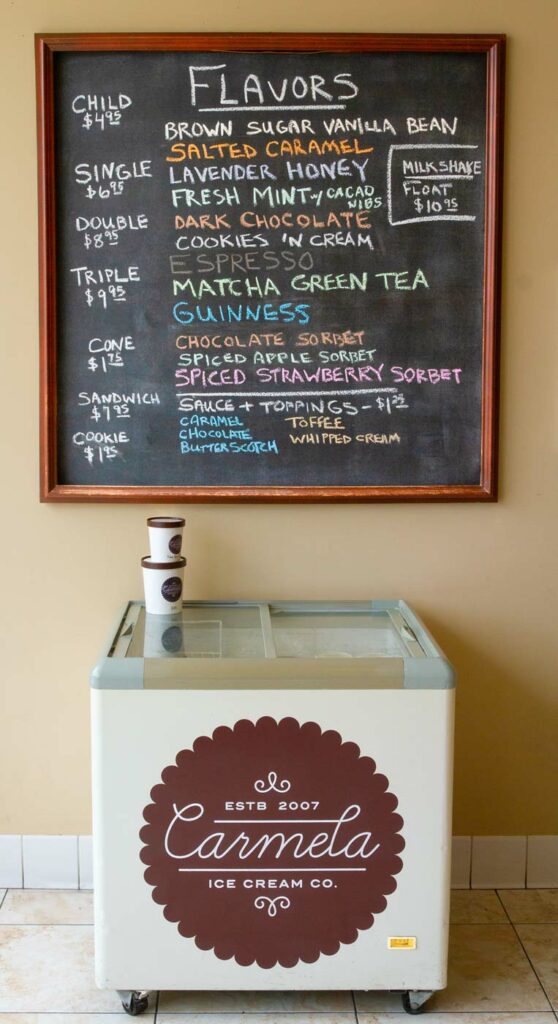 FLAVORS
CHILD
$4.95
SINGLE
$6.95
DOUBLE
$8.95
TRIPLE
$9.95
CONE
$1.75
SANDWICH
$7.95
COOKIE
$1.95
BROWN SUGAR VANILLA BEAN
SALTED CARAMEL
LAVENDER HONEY
FRESH MINT w/ CACAO
NIBS
DARK CHOCOLATE
COOKIES 'N CREAM
ESPRESSO
MATCHA GREEN TEA
GUINNESS
CHOCOLATE SORBET
SPICED APPLE SORBET
SPICED STRAWBERRY SORBET
SAUCE + TOPPINGS - $1.25
CARAMEL
CHOCOLATE
BUTTERSCOTCH
TOFFEE
WHIPPED CREAM
MILKSHAKE
FLOAT
$10.95
ESTB 2007
Carmela
ICE CREAM CO.